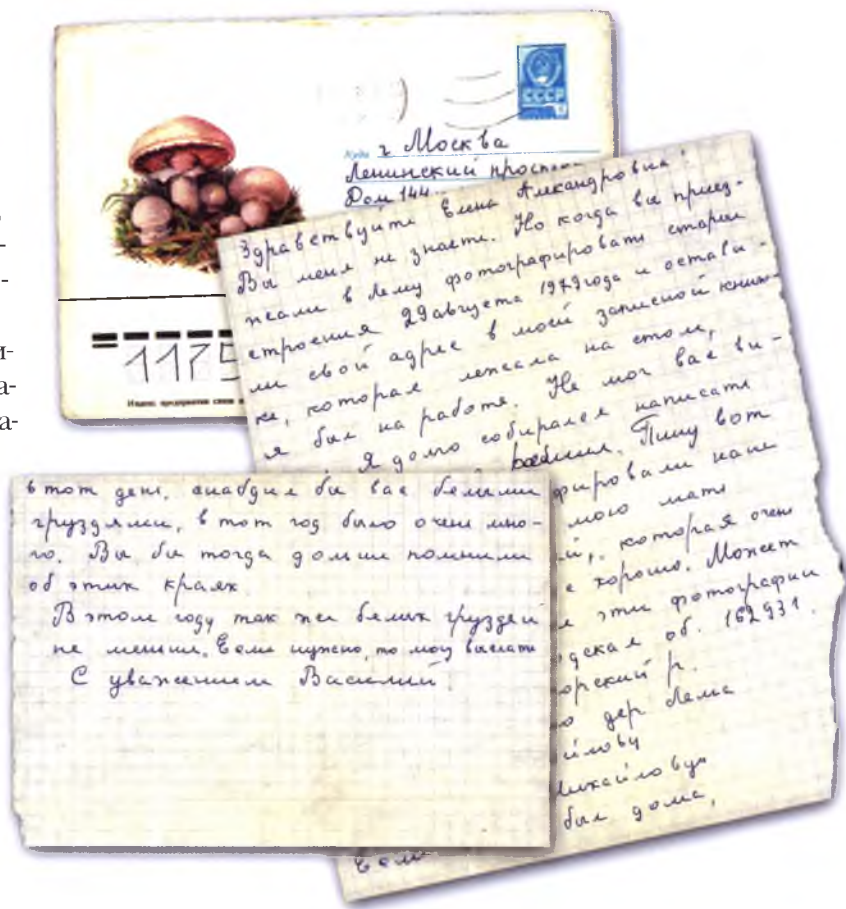 -
-
и-
а-
а-
СССР
Куда г Москва
Ленинский проспек
Дом 144
1175
Здравствуйте Елена Александровна!
Вы меня не знаете. Но когда вы приез-
жали в Лему фотографировать старые
строения 29 августа 1979 года и остави-
ли свой адрес в моей записной книж-
ке, которая лежала на столе,
я был на работе. Не мог вас ви-
Я долго собирался написать
Пишу вот
фировали наш
мою мать
й, которая очень
е хорошо. Может
эти фотографии
одская об. 162931.
орский р.
о дер Лема
йлову
Михайловуч
был дома,
Если
в тот день, снабдил бы вас белыми
груздями, в тот год было очень мно-
го. Вы бы тогда дольше помнили
об этих краях.
В этом году так же белых груздей
не меньше. Если нужно, то могу выслать
С уважением Василий.